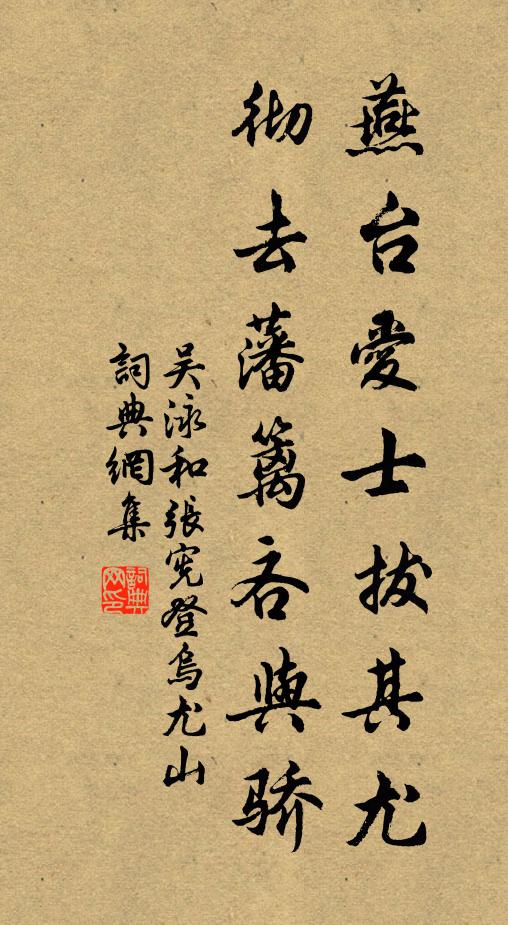 燕台愛士拔其尤
彻去藩篱吝與骄
吴泳和張宪登烏尤山
詞典網集
詞典網印